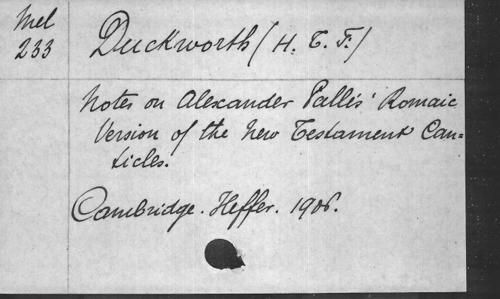 Mel
233
Duckworth (H. T. F.)
Notes on Alexander Pallis' Romaic
Version of the New Testament Can=
ticles.
Cambridge. Heffer. 1906.